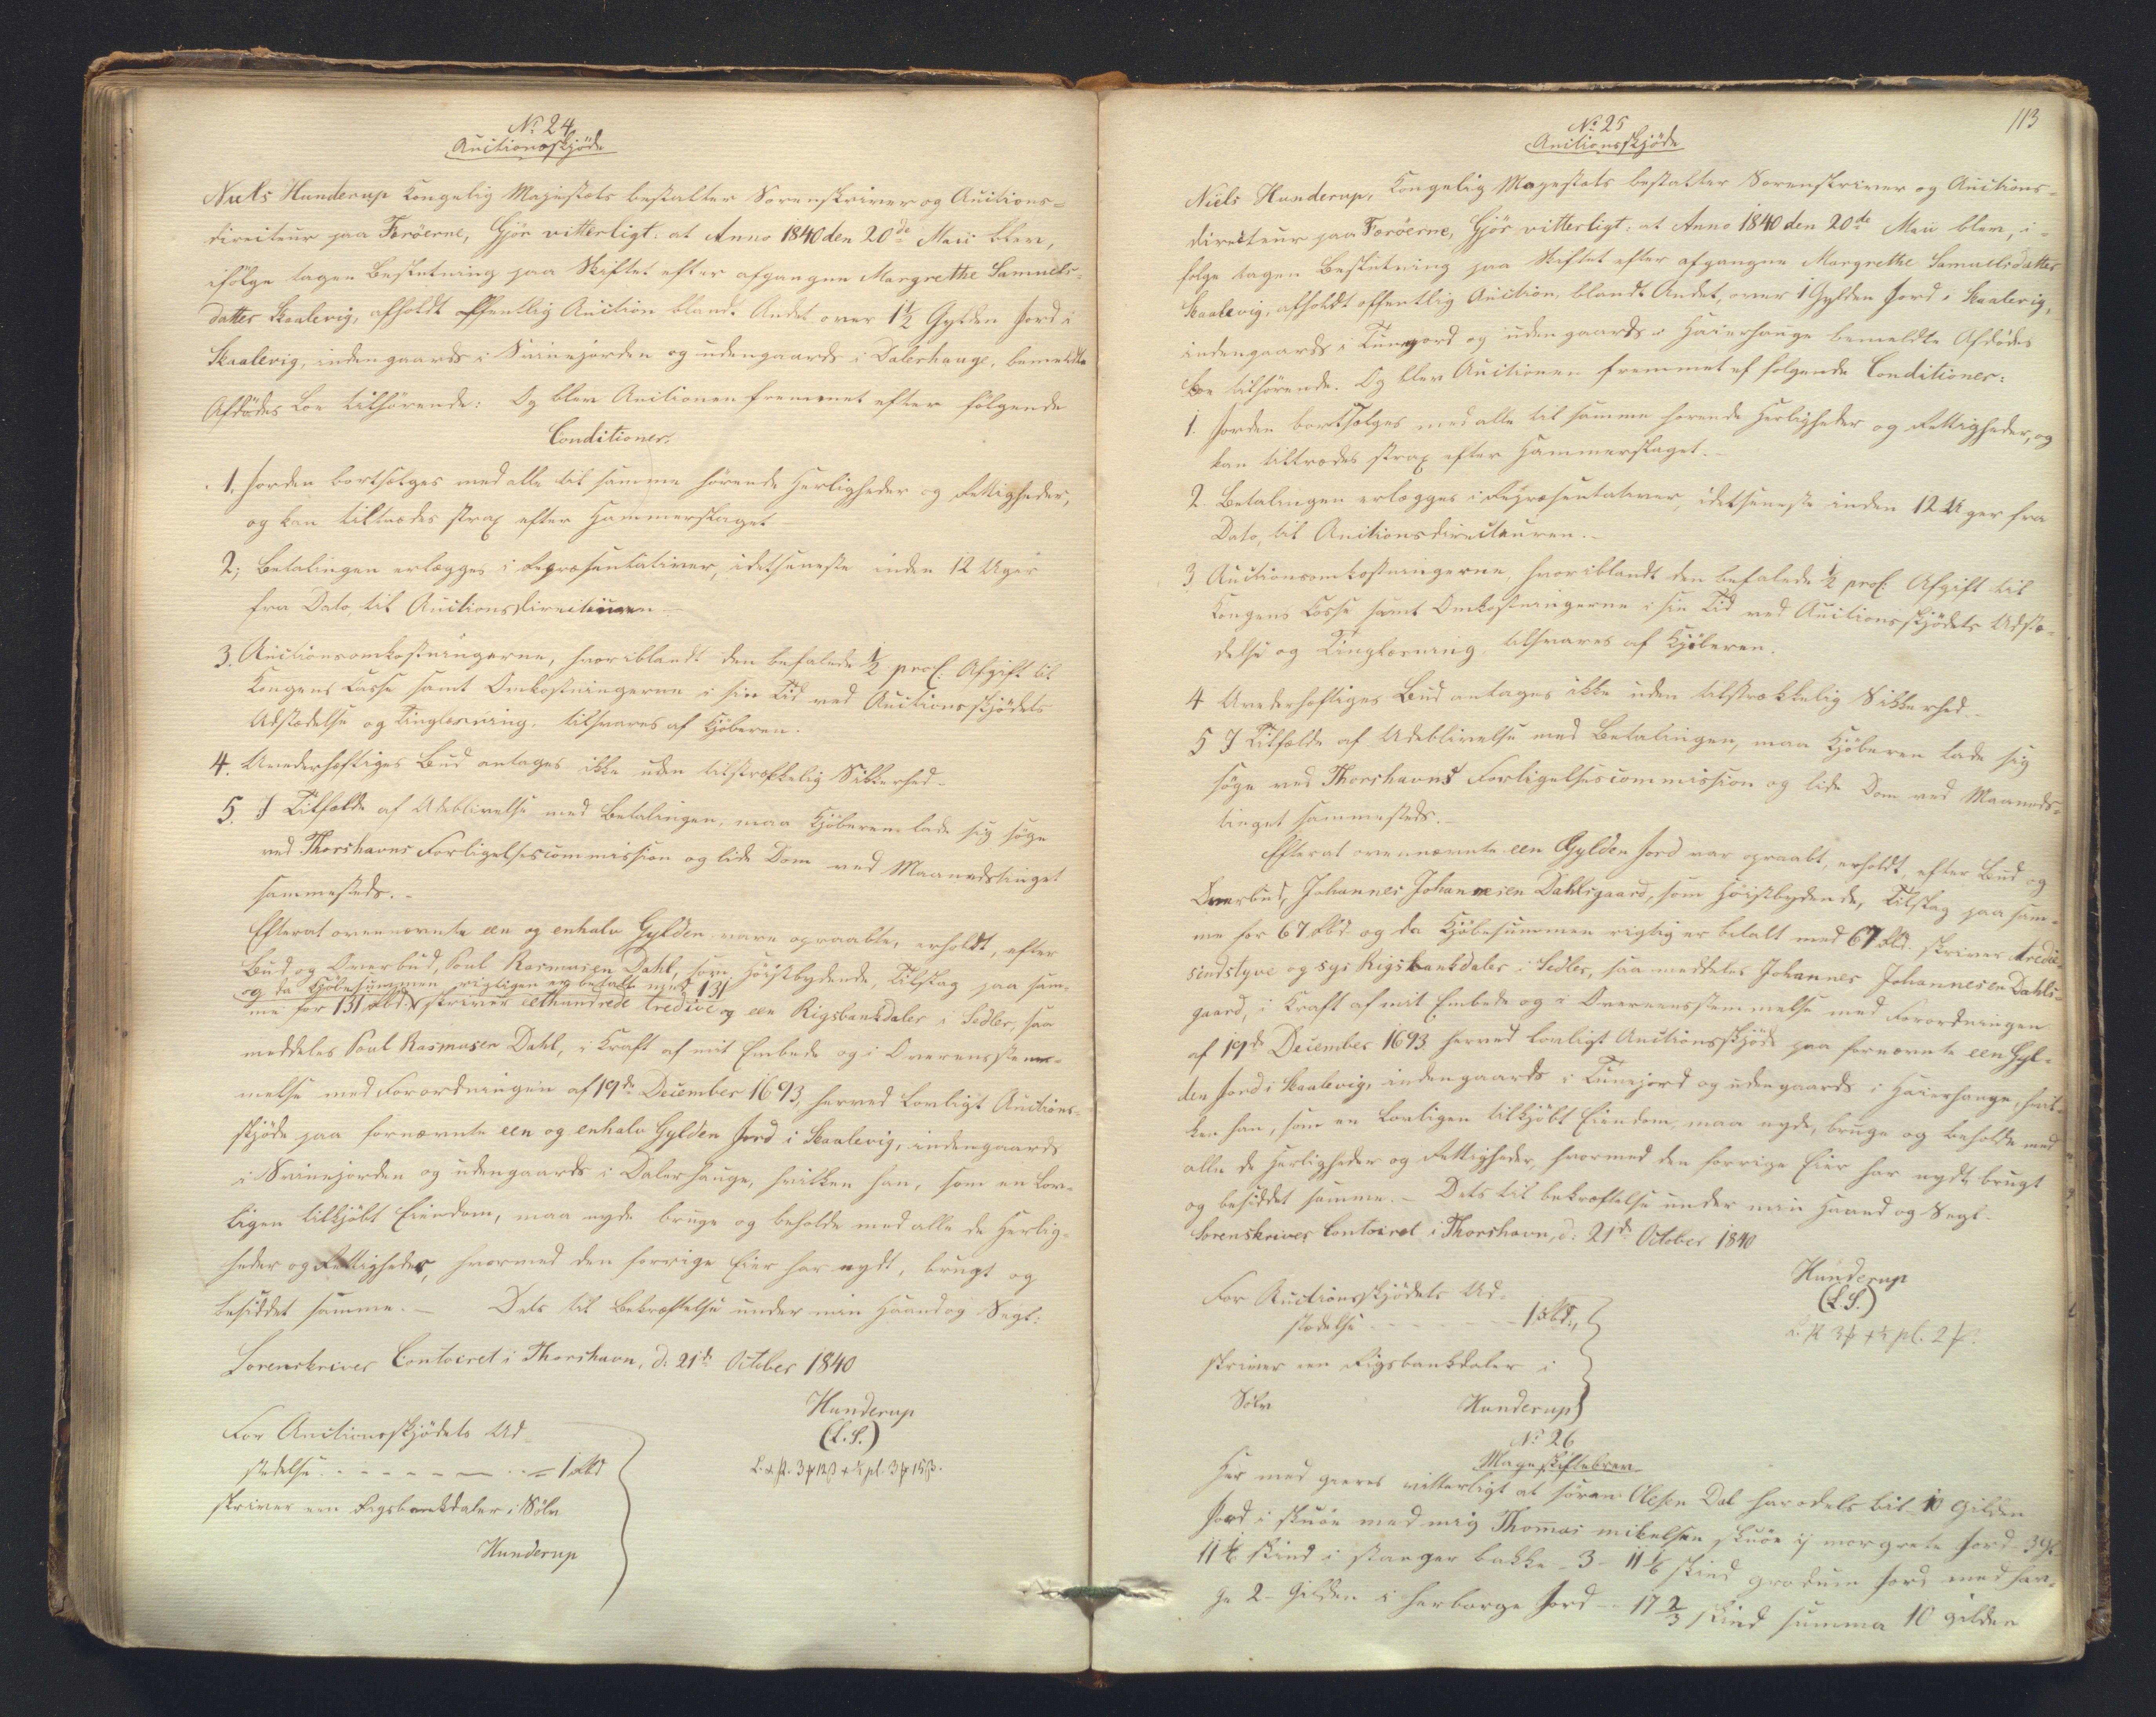 No 24
Auctionsskjöde
Niels Hunderup Kongelig Majestæts bestalter Sorenskriver og Auctions=
directeur paa Færöerne, Gjör vitterligt: at Anno 1840 den 20de Maii blev,
ifölge tagen Beslutning paa Skiftet efter afgangne Margrethe Samuels=
datter Skaalevig, afholdt offentlig Auction blandt Andet over 1½ Gylden Jord i
Skaalevig, indengaards i Svinejorden og udengaards i Dalerhauge, bemeldte
Afdödes Boe tilhörende: Og blev Auctionen fremmet efter fölgende
Conditioner.
1. Jorden bortsælges med alle til samme hörende Herligheder og Rettigheder,
og kan tiltrædes strax efter Hammerslaget
2; Betalingen erlægges i Repræsentativer, idetseneste inden 12 Uger
fra Dato, til Auctionsdirecteuren
3. Auctionsomkostningerne, hvoriblandt den befalede ½ proC: Afgift til
Kongens Casse samt Omkostningerne i sin Tid ved Auctionsskjödets
Udstædelse og Tinglæsning, tilsvares af Kjöberen.
4. Uvederhæftiges Bud antages ikke uden tilstrækkelig Sikkerhed.
5. I Tilfælde af Udeblivelse med Betalingen, maa Kjöberen lade sig söge
ved Thorshavns Forligelsescommission og lide Dom ved Maanedstinget
sammesteds.
Efterat ovennævnte een og enhalv Gylden vare opraabte, erholdt, efter
Bud og Overbud, Poul Rasmusen Dahl, som Höistbydende, Tilslag paa sam=
og da Kjöbesummen rigtigen er betalt med 131
me for 131 Rbd. skriver eethundrede tredive og een Rigsbankdaler i Sedler, saa
meddeles Poul Rasmusen Dahl, i Kraft af mit Embede og i Overensstem=
melse med Forordningen af 19de December 1693, herved lovligt Auctions=
skjöde paa fornævnte een og enhalv Gylden Jord i Skaalevig, indengaards
i Svinejorden og udengaards i Dalerhauge, hvilken han, som en lov=
ligen tilkjöbt Eiendom, maa nyde bruge og beholde med alle de Herlig=
heder og Rettigheder, hvormed den forrige Eier har nydt, brugt og
besiddet samme. — Dets til Bekræftelse under min Haand og Segl:
Sorenskriver Contoiret i Thorshavn, d: 21de October 1840
Hunderup
(L.S.)
For Auctionsskjödets Ud=
stædelse - - - - - - 1 Rbd
skriver een Rigsbankdaler i Sölv
Hunderup
113
No 25
Auctionsskjöde
Niels Hunderup, Kongelig Magestæts bestalter Sorenskriver og Auctions=
directeur paa Færöerne, Gjör vitterligt: at Anno 1840 den 20de Maii blev, i=
fölge tagen Beslutning paa Skiftet efter afgangne Margrethe Samuelsdatter
Skaalevig, afholdt offentlig Auction, blandt Andet, over 1 Gylden Jord i Skaalevig,
indengaards i Tunejord og udengaards i Haierhauge bemeldte Afdödes
Boe tilhörende. Og blev Auctionen fremmet ef fölgende Conditioner:
1. Jorden bortsælges med alle til samme hörende Herligheder og Rettigheder, og
kan tiltrædes strax efter Hammerslaget.
2. Betalingen erlægges i Repræsentativer, idetseneste inden 12 Uger fra
Dato, til Auctionsdirecteuren.
3 Auctionsomkostningerne, hvoriblandt den befalede ½ proC: Afgift til
Kongens Casse samt Omkostningerne i sin Tid ved Auctionsskjödets Udstæ=
delse og Tinglæsning tilsvares af Kjöberen.
4 Uvederhæftiges Bud antages ikke uden tilstrækkelig Sikkerhed.
5 I Tilfælde af Udeblivelse med Betalingen, maa Kjöberen lade sig
söge ved Thorshavns Forligelsescommission og lide Dom ved Maaneds=
tinget sammesteds.
Efterat ovennævnte een Gylden Jord var opraabt, erholdt, efter Bud og
Overbud, Johannes Johannesen Dahlsgaard, som Höistbydende, Tilslag paa sam=
me for 67 Rbd. og da Kjöbesummen rigtig er betalt med 67 Rbd. skriver tredie=
sindstyve og syv Rigsbankdaler i Sedler, saa meddeles Johannes Johannesen Dahls=
gaard, i Kraft af mit Embede og i Overeensstemmelse med Forordningen
af 19de December 1693 herved lovligt Auctionsskjöde paa fornævnte een Gyl=
den Jord i Skaalevig, indengaards i Tunejord og udengaards i Haierhauge, hvil=
ken han, som en lovligen tilkjöbt Eiendom, maa nyde, bruge og beholde med
alle de Herligheder og Rettigheder, hvormed den forrige Eier har nydt, brugt
og besiddet samme. — Dets til bekræftelse under min Haand og Segl.
Sorenskriver Contoiret i Thorshavn, d: 21de October 1840
Hunderup
(L.S.)
For Auctionsskjödets Ud=
stædelse - - - - - - 1 Rbd.,
skriver een Rigsbankdaler i
Sölv Hunderup
No 26
Mageskiftebrev
Her med giøres vitterligt at Sören Olesen Dal har odels bit 10 Gilden
Jord i Skuöe med mig Thomas Mikelsen Skuöe ij morgrete Jord 3 gl
11 1/6 Skind i stanger bakke - 3 - 11 1/6 Skind Jord med hav=
ge 2 - Gilden i herborge Jord - 17 2/3 Skind summa 10 Gilden